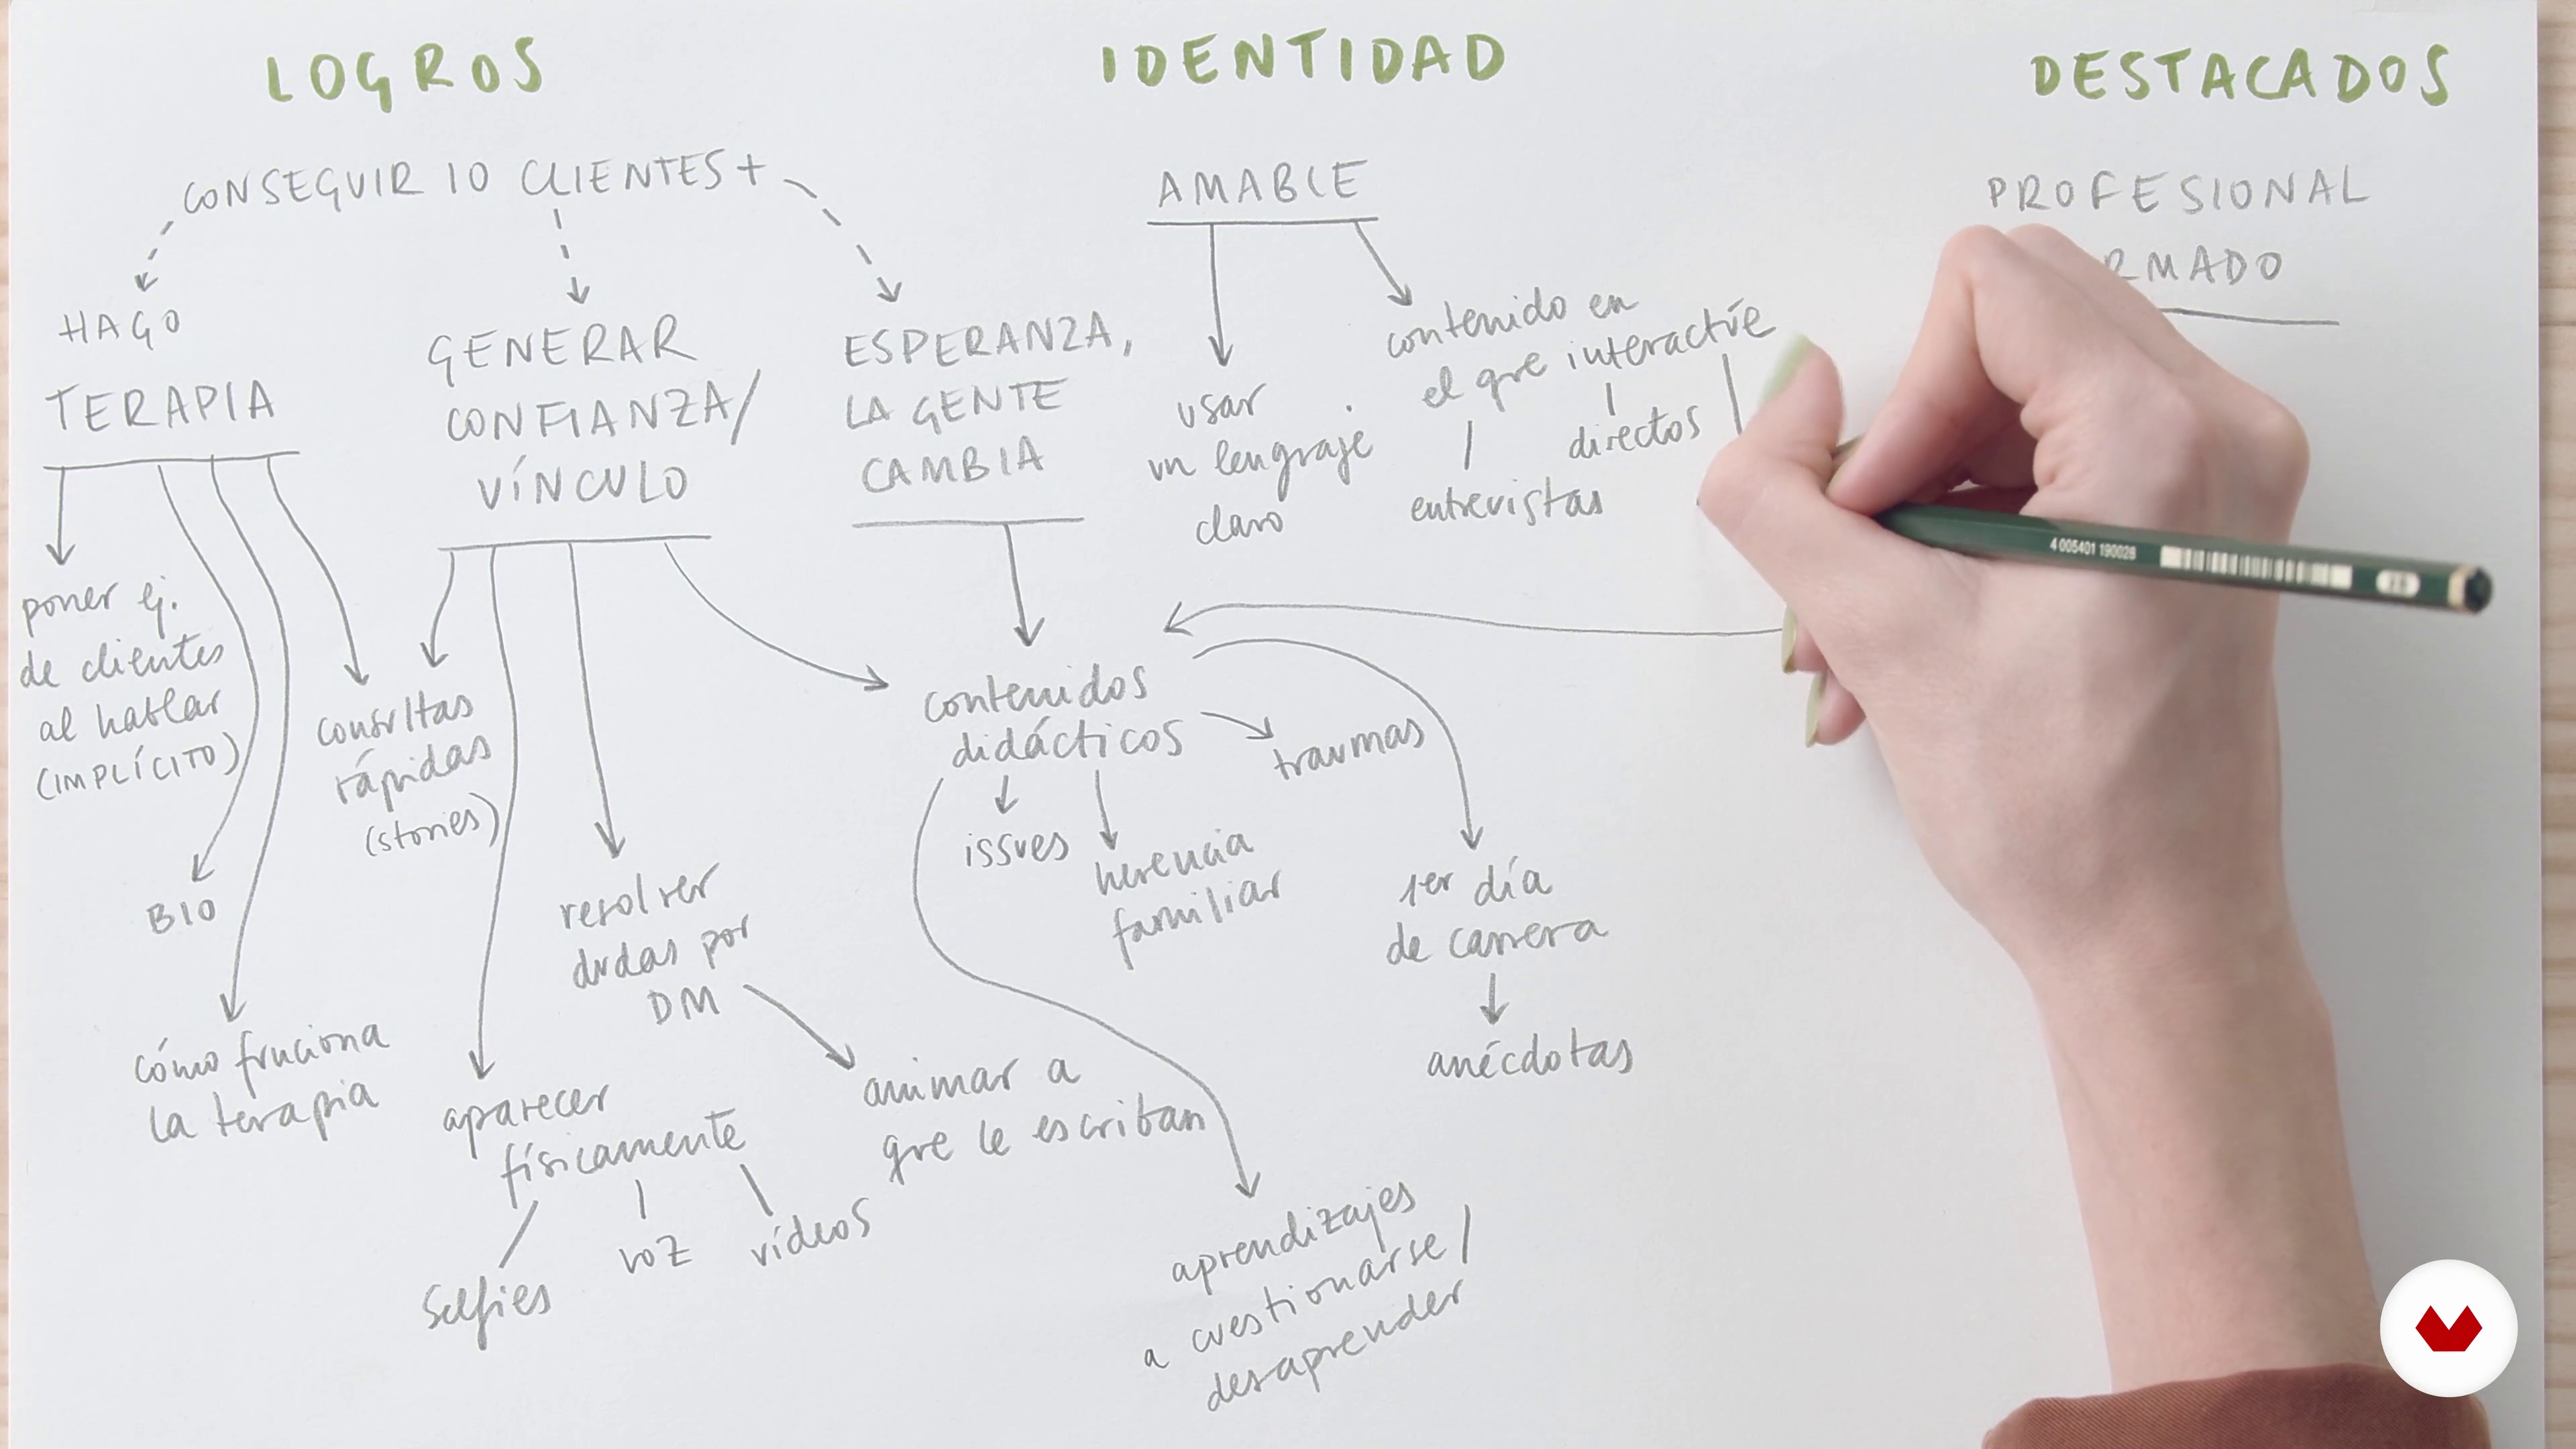 LOGROS
IDENTIDAD
DESTACADOS
CONSEGUIR 10 CLIENTES +
HAGO
TERAPIA
poner ej.
de clientes
al hablar
(IMPLÍCITO)
BIO
cómo funciona
la terapia
consultas
rápidas
(stories)
GENERAR
CONFIANZA/
VÍNCULO
aparecer
físicamente
selfies
voz
vídeos
resolver
dudas por
DM
animar a
que le escriban
ESPERANZA,
LA GENTE
CAMBIA
contenidos
didácticos
issues
herencia
familiar
traumas
1er día
de carrera
anécdotas
aprendizajes
a cuestionarse/
desaprender
AMABLE
usar
un lenguaje
claro
contenido en
el que interactúe
entrevistas
directos
PROFESIONAL
RMADO
4 005401 190028